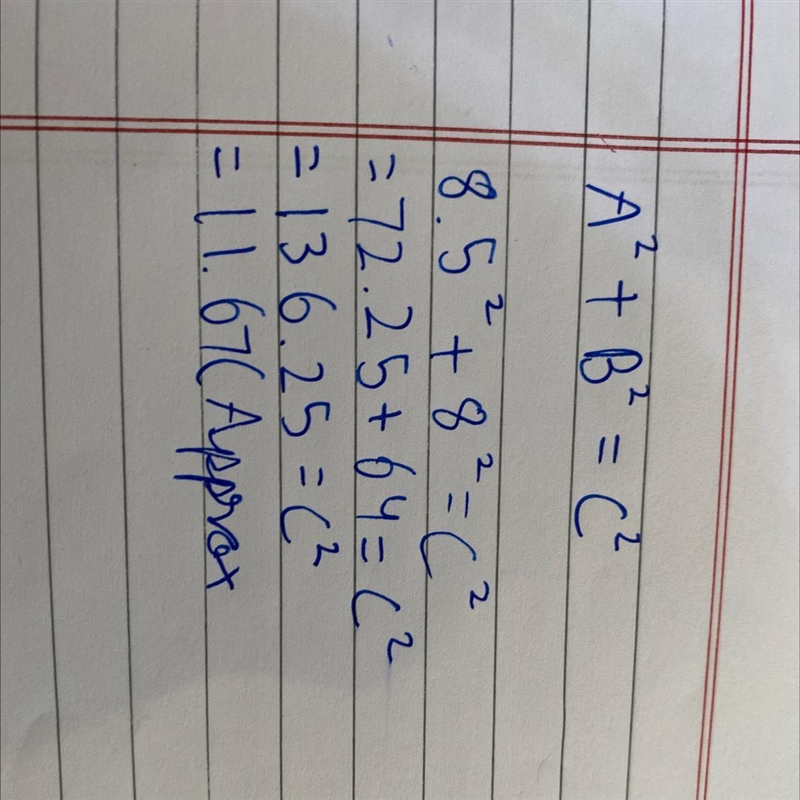 A² + B² = C²
8.5² + 8² = C²
= 72.25 + 64 = C²
= 136.25 = C²
= 11.67 (Approx